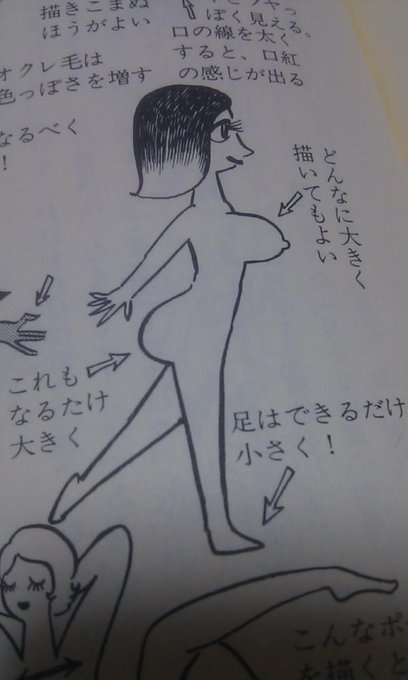 描きこまぬ
ほうがよい
ぽく見える。
口の線を太く
すると、口紅
の感じが出る
オクレ毛は
色っぽさを増す
なるべく
！
どんなに大きく
描いてもよい
これも
なるたけ
大きく
足はできるだけ
小さく！
こんなポ
を描くと